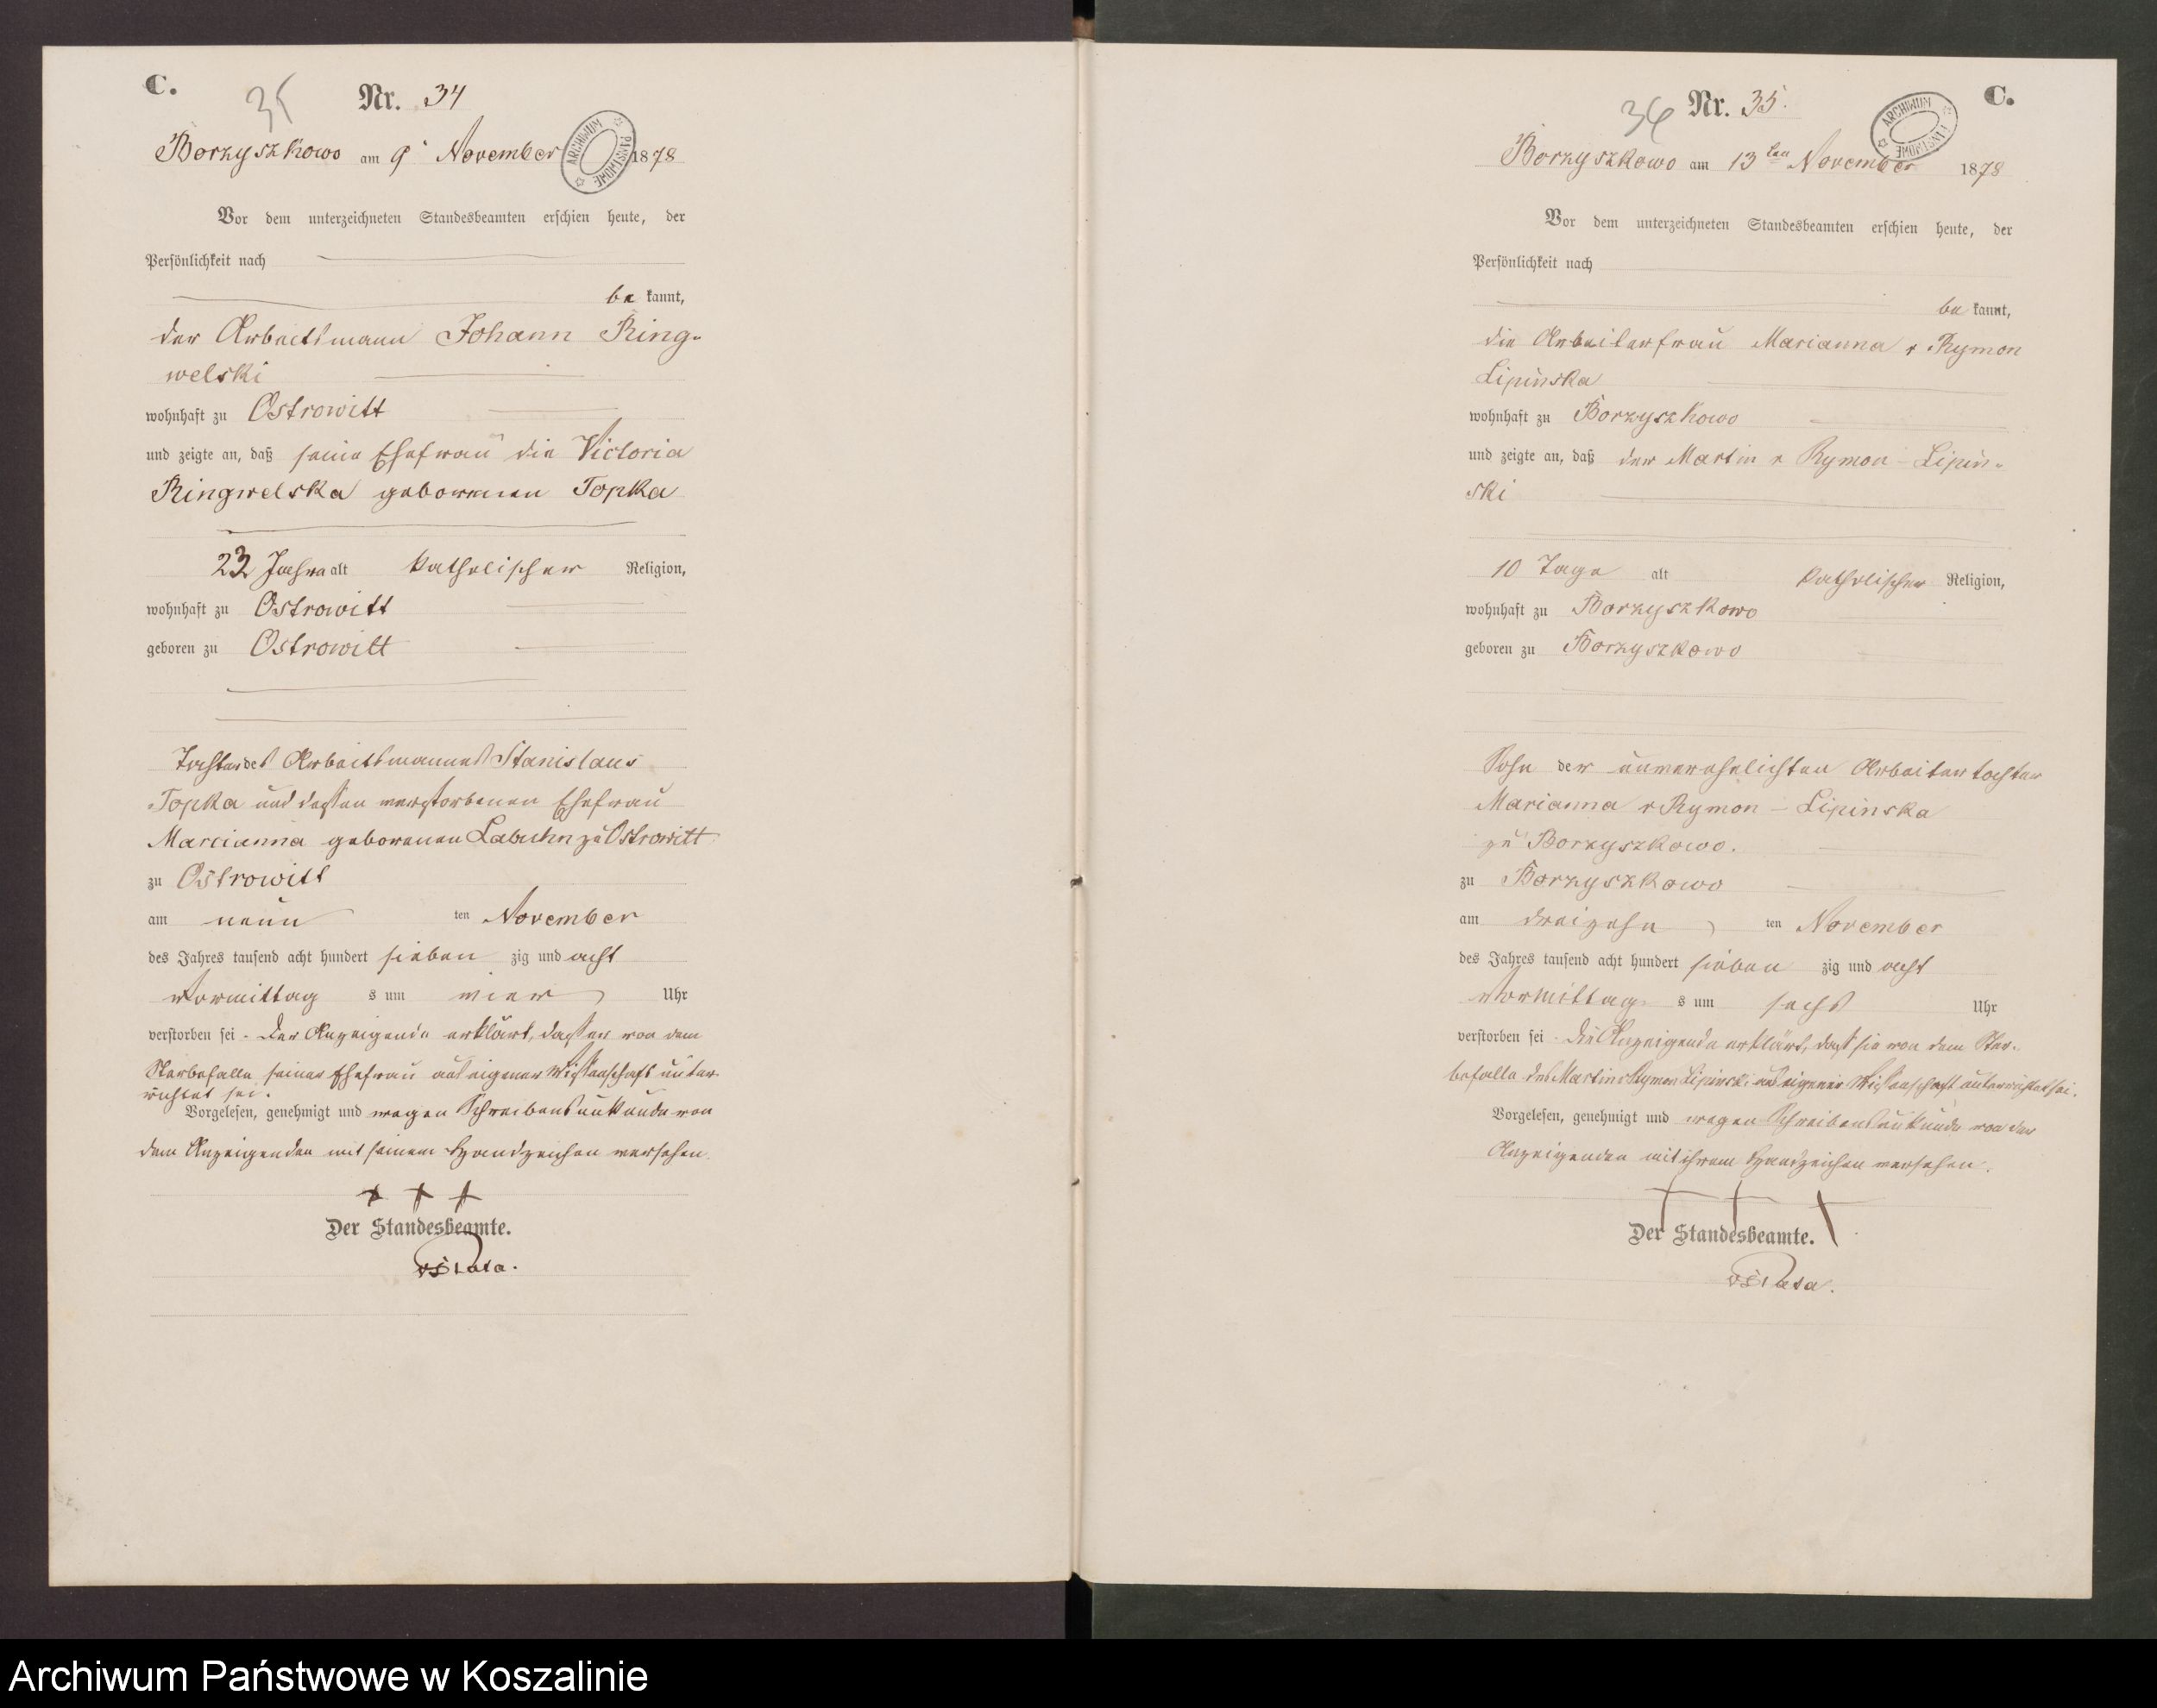 C.
35
Nr. 34
Borzyszkowo am 9 November 1878
ARCHIWUM PAŃSTWOWE
Vor dem unterzeichneten Standesbeamten erschien heute, der
Persönlichkeit nach
be kannt,
der Arbeitsmann Johann Ring-
welski
wohnhaft zu Ostrowitt
und zeigte an, daß seine Ehefrau die Victoria
Ringwelska geborenen Topka
23 Jahre alt katholischer Religion,
wohnhaft zu Ostrowitt
geboren zu Ostrowitt
Tochter des Arbeitsmannes Stanislaus
Topka und dessen verstorbenen Ehefrau
Marcianna geborenen Labuhn zu Ostrowitt
zu Ostrowitt
am neun ten November
des Jahres tausend acht hundert sieben zig und acht
vormittag s um vier Uhr
verstorben sei. Der Anzeigende erklärt, dass er von dem
Sterbefalle seiner Ehefrau aus eigener Wissenschaft unter-
richtet sei.
Vorgelesen, genehmigt und wegen Schreibensunkunde von
dem Anzeigenden mit seinem Handzeichen versehen.
+ + +
Der Standesbeamte.
C.
36
Nr. 35.
Borzyszkowo am 13ten November 1878
ARCHIWUM PAŃSTWOWE
Vor dem unterzeichneten Standesbeamten erschien heute, der
Persönlichkeit nach
be kannt,
die Arbeiterfrau Marianna v Rymon
Lipinska
wohnhaft zu Borzyszkowo
und zeigte an, daß der Martin v Rymon - Lipin-
ski
10 Tage alt katholischer Religion,
wohnhaft zu Borzyszkowo
geboren zu Borzyszkowo
Sohn der unverehelichten Arbeitertochter
Marianna v Rymon - Lipinska
zu Borzyszkowo.
zu Borzyszkowo
am dreizehn ten November
des Jahres tausend acht hundert sieben zig und acht
vormittag s um sechs Uhr
verstorben sei. Die Anzeigende erklärt, dass sie von dem Ster-
befalle des Martin v Rymon Lipinski aus eigener Wissenschaft unterrichtet sei.
Vorgelesen, genehmigt und wegen Schreibensunkunde von der
Anzeigenden mit ihrem Handzeichen versehen.
+ + +
Der Standesbeamte.
Archiwum Państwowe w Koszalinie